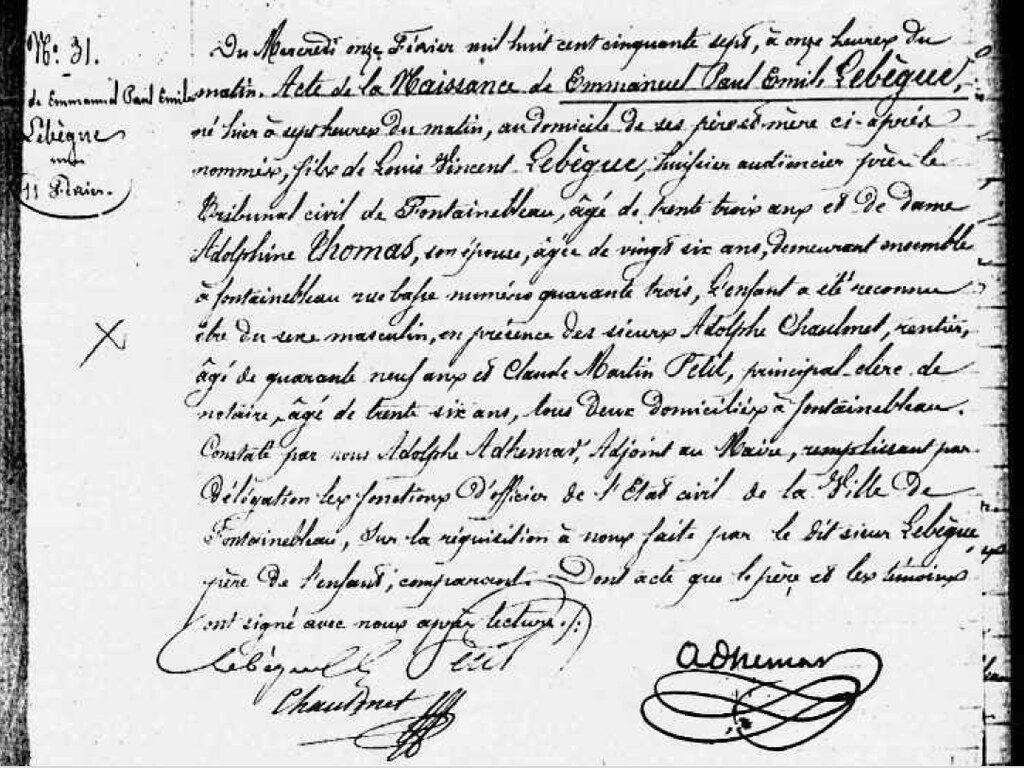 N.º 31.
de Emmanuel Paul Emile
Lebègue
11 Février.
Du Mercredi onze Février mil huit cent cinquante sept, à onze heures du
matin. Acte de la Naissance de Emmanuel Paul Emile Lebègue,
né hier à sept heures du matin, au domicile de ses père et mère ci-après
nommés, fils de Louis Vincent Lebègue, huissier audiencier près le
Tribunal civil de Fontainebleau, âgé de trente trois ans et de dame
Adolphine Thomas, son épouse, âgée de vingt six ans, demeurant ensemble
à fontainebleau rue basse numéro quarante trois, L'enfant a été reconnu
être du sexe masculin, en présence des sieurs Adolphe Chaulmet, rentier,
âgé de quarante neuf ans et Claude Martin Petit, principal clerc de
notaire, âgé de trente six ans, tous deux domiciliés à fontainebleau.
Constaté par nous Adolphe Adhemar, Adjoint au Maire, remplissant par
délégation les fonctions d'officier de l'Etat civil de la Ville de
Fontainebleau, Sur la réquisition à nous faite par le dit sieur Lebègue,
père de l'enfant, comparant. Dont acte que le père et les témoins
ont signé avec nous après lecture./.
Lebègue Petit
Adhemar